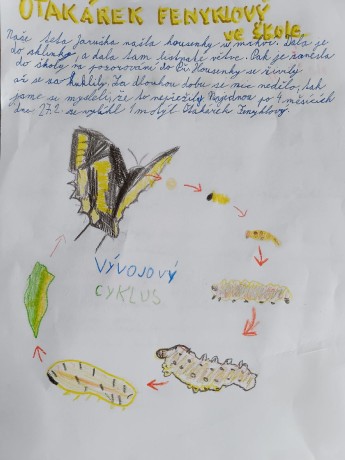 OTAKÁREK FENYKLOVÝ
ve ŠKOLE
Naše teta Jaruška našla housenky na mrkve. Dala je
do skleničky, a dala tam čerstvé větve. Pak je zavřela
do školy na pozorování do Př. Housenky se živily
až se zakuklily. Za dlouhou dobu se nic nedělo, tak
jsme si mysleli, že to nepřežily. Najednou po 4 měsících
dne 17.2. se vyklubl 1 motýl Otakárek Fenyklový.
VÝVOJOVÝ
CYKLUS